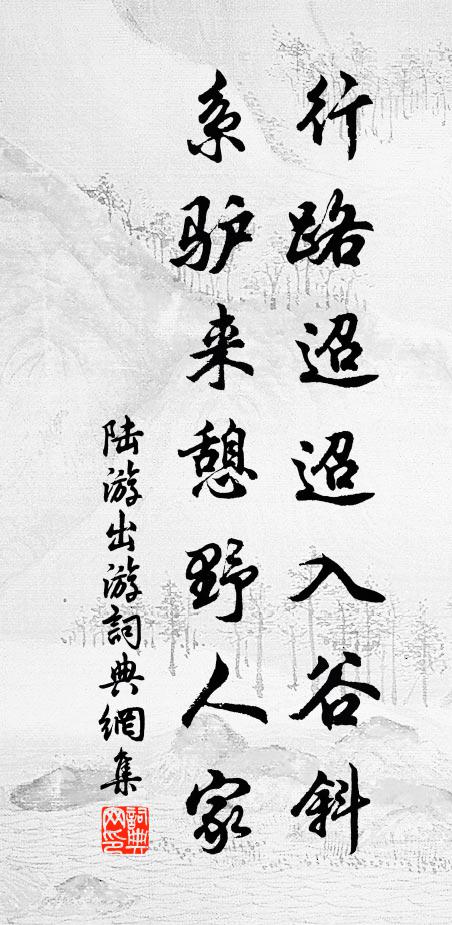 行路迢迢入谷斜
系驴来憩野人家
陆游出游詞典網集
詞典網印